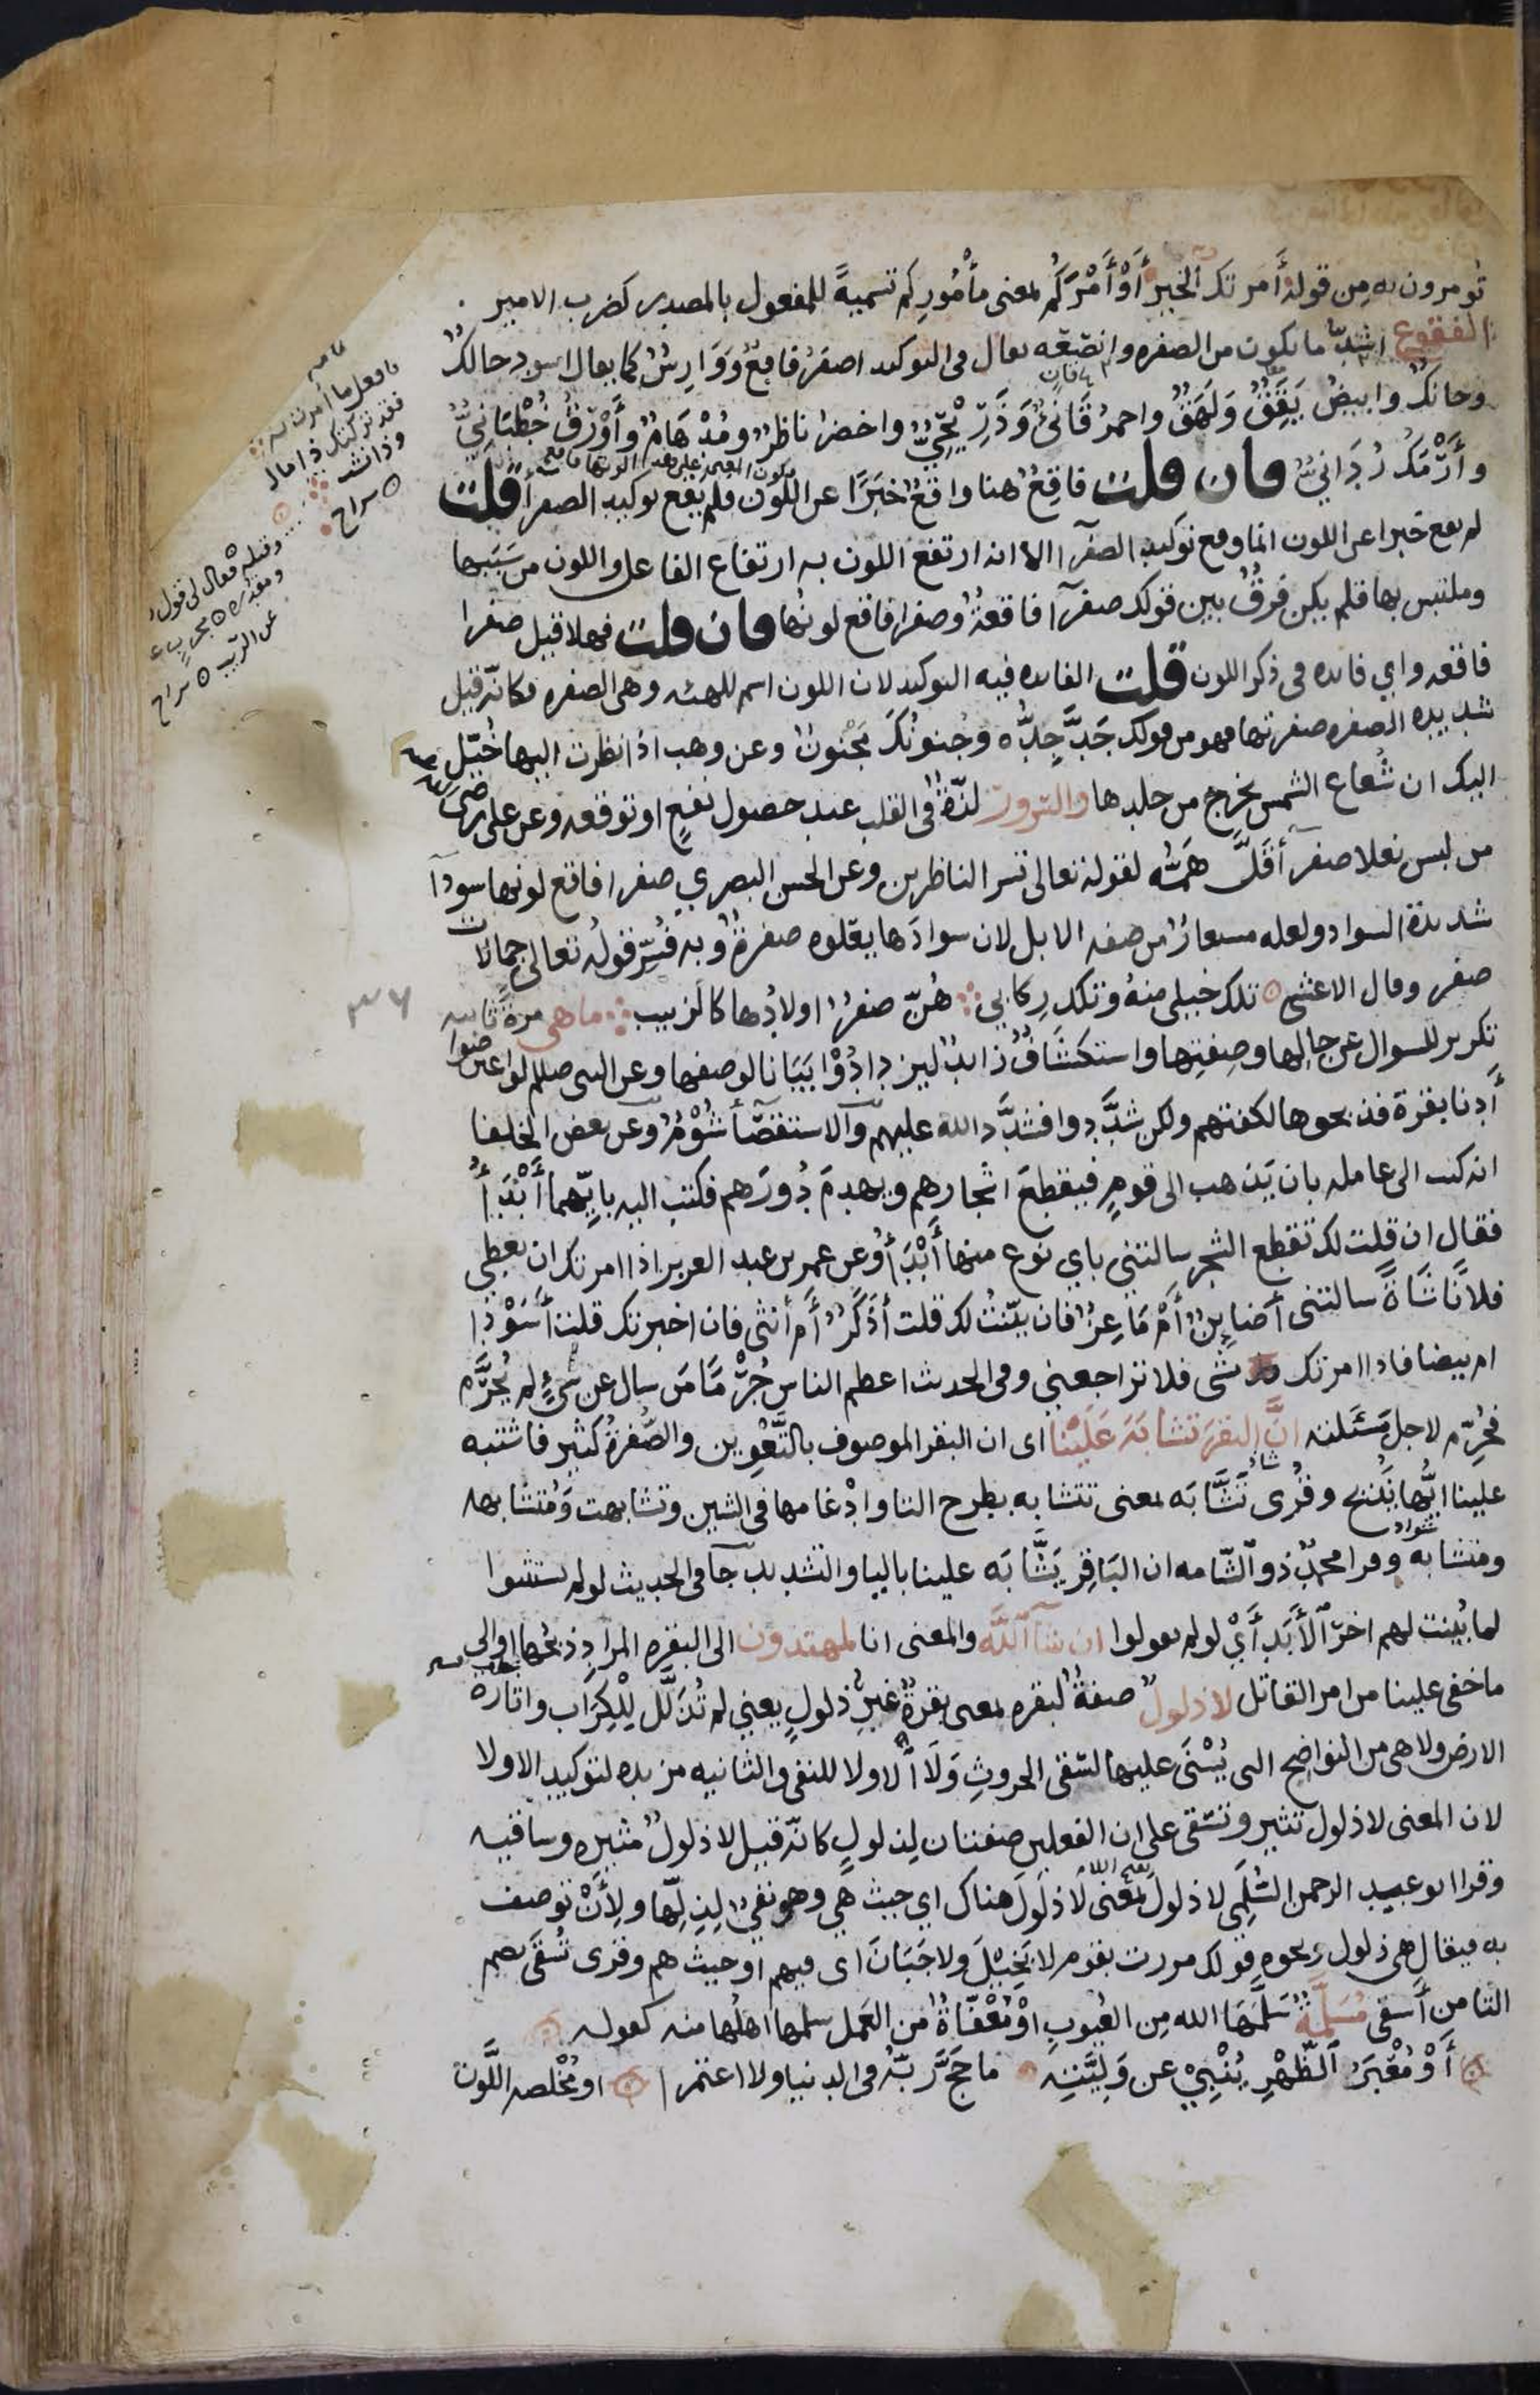 تومرون به من قوله أمرتك الخير أَوْ أَمْرَكُم بمعنى مأْمُورِكم تسميةً للمفعول بالمصدر كضرب الامير
الفقوع اشدّ ما يكون من الصفره وانصعه يعال في التوكيد اصفرُ فاقعٌ وَوَارِسٌ كما يعال اسود حالكٌ
وحانكٌ وابيضُ يَقَقٌ وَلَهَقٌ واحمرُ قَانئٌ وَذَرِيحِيٌّ واخضرُ ناظرٌ ومُدْهَامٌّ وأَوْرَقُ خُطْبَانِيٌّ
وأَرْمَكُ رُدَانيٌّ فان قلت فاقِعٌ هنا واقعٌ خَبَرًا عن اللون فلم يقع توكيد الصفرآ قلت
لم يقع خبرا عن اللون انما وقع توكيد الصفرآ الا انه ارتفع اللون به ارتفاع الفاعل واللون من سَبَبها
وملتبس بها فلم يكن فَرقٌ بين قولك صفرآ فاقعةٌ وصفرا فاقع لونُها فان قلت فهلا قيل صفرا
فاقعه واي فائده في ذكر اللون قلت الفائده فيه التوكيد لان اللون اسم للهيئه وهي الصفره فكانّه قيل
شديده الصفره صفرتها فهو من قولك جَدَّ جِدُّه وجُنونُكَ مَجْنونٌ وعن وهب اذا نظرت اليها خُيّل
اليك ان شُعاع الشمس يخرج من جلدها والسرور لذّةٌ في القلب عند حصول نفعٍ او توقعه وعن علي رضي
من لبس نعلا صفرآ قَلَّ هَمُّه لقوله تعالى تسر الناظرين وعن الحسن البصري صفرا فاقع لونها سودآ
شديدة السواد ولعله مستعارٌ من صفه الابل لان سوادَها يعلوه صفرةٌ وبه فُسِّر قولُه تعالى جمالات
صفر وقال الاعشى تلك خيلي منهُ وتلك رِكابي هُنّ صفرٌ اولادُها كالزبيب ما هي مرةً ثانيه
تكرير للسوال عن حالِها وصِفتِها واستكشافٌ زائدٌ ليزدادُوْا بَيَانًا لوصفها وعن النبي صلعم لو اعترضوا
أدنا بقرة فذبحوها لكفتهم ولكن شدَّدوا فشدَّد الله عليهم والاستقصآ شُؤْمٌ وعن بعض الخلفا
انه كتب الى عامله بان يَذهب الى قومٍ فيقطعَ اشجارهم ويهدمَ دُورَهم فكتب اليه بايِّهما أَبْدَأُ
فقال ان قلت لك تقطع الشجر سالتني باي نوع منها أَبْدَأُ وعن عمر بن عبد العزيز اذا امرتك ان تعطي
فلانًا شاةً سالتني أَضَايِنٌ أَمْ مَاعِزٌ فان بيّنتُ لك قلت أَذَكَرٌ أَم أنثى فان اخبرتك قلت أَسَوْدا
ام بيضا فاذا امرتك بشى فلا تراجعني وفي الحديث اعظم الناس جُرْمًا مَن سال عن شيءٍ لم يُحَرَّم
فحُرِّم لاجل مَسْئَلته انَّ البقرَ تشابَهَ عَلَيْنا اى ان البقر الموصوف بالتَّعْوِين والصُّفرةِ كثير فاشتبه
علينا ايُّها نَذبح وقُرى تَشَّابَه بمعنى تتشابه بطرح التا وادْغامها في الشين وتشابهت وَمُتشابهه
ومتشابه وقرا محمدٌ ذو الشّامه ان البَاقِر يَشَّابَه علينا باليا والتشديد جآ في الحديث لو لم يستثنوا
لما بُيِّنت لهم اخرَ ٱلأَبَدِ أَيْ لو لم يقولوا ان شآ ٱللَّه والمعنى انا لمهتدون الى البقره المرادِ ذبحُها او الى
ما خفى علينا من امر القاتل لا ذلولٌ صفةٌ لبقره بمعنى بقرةٌ غيرُ ذلولٍ يعني لم تُذَلَّل لِلْكِرَاب واثارة
الارض ولا هي من النواضِح التي يُسْنَى عليها لسَقي الحروثِ وَلَا ٱلاولا للنفي والثانيه مزيده لتوكيد الاولا
لان المعنى لا ذلول تثير وتسقي على ان الفعلين صفتان لِذلولٍ كانّه قيل لا ذلولٌ مثيره وساقيه
وقرا ابو عبد الرحمن السُّلَمِي لا ذلولَ بمعنى لا ذلولَ هناك اي حيث هي وهو نفيٌ لِذِلِّها ولِأَنْ توصف
به فيقال هي ذلول ونحوه قولك مررت بقوم لا بَخِيلَ ولا جَبَانَ اى فيهم او حيث هم وقرى تُسْقَى بضم
التا من أَسقى مُسَلَّمةٌ سَلَّمَهَا الله مِن العُيوبِ اوْ مُعْفَاةٌ مِن العَمل سلمها اهلُها منه كقوله
أَوْ مُعْبَرُ ٱلظَّهْرِ يُنْبِيْ عن وَلِيَّتِهِ ما حَجَّ رَبُّهُ في الدنيا ولا اعتمرا او مُخْلصه اللَّون
فافعل ما أمرت به
فقد تركتك ذا مال
وذا نشب
سراح